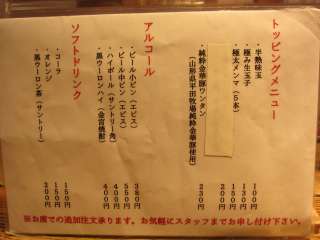 トッピングメニュー
・半熟味玉 100円
・極み生玉子 130円
・極太メンマ(5本) 150円
200円
・純粋金華豚ワンタン 230円
(山形県平田牧場純粋金華豚使用)
アルコール
・ビール小ビン(エビス) 380円
・ビール中ビン(エビス) 550円
・ハイボール(サントリー角) 400円
・黒ウーロンハイ(金宮焼酎) 400円
ソフトドリンク
・コーラ 150円
・オレンジ 150円
・黒ウーロン茶(サントリー) 200円
※お席での追加注文承ります。お気軽にスタッフまでお申し付け下さい。